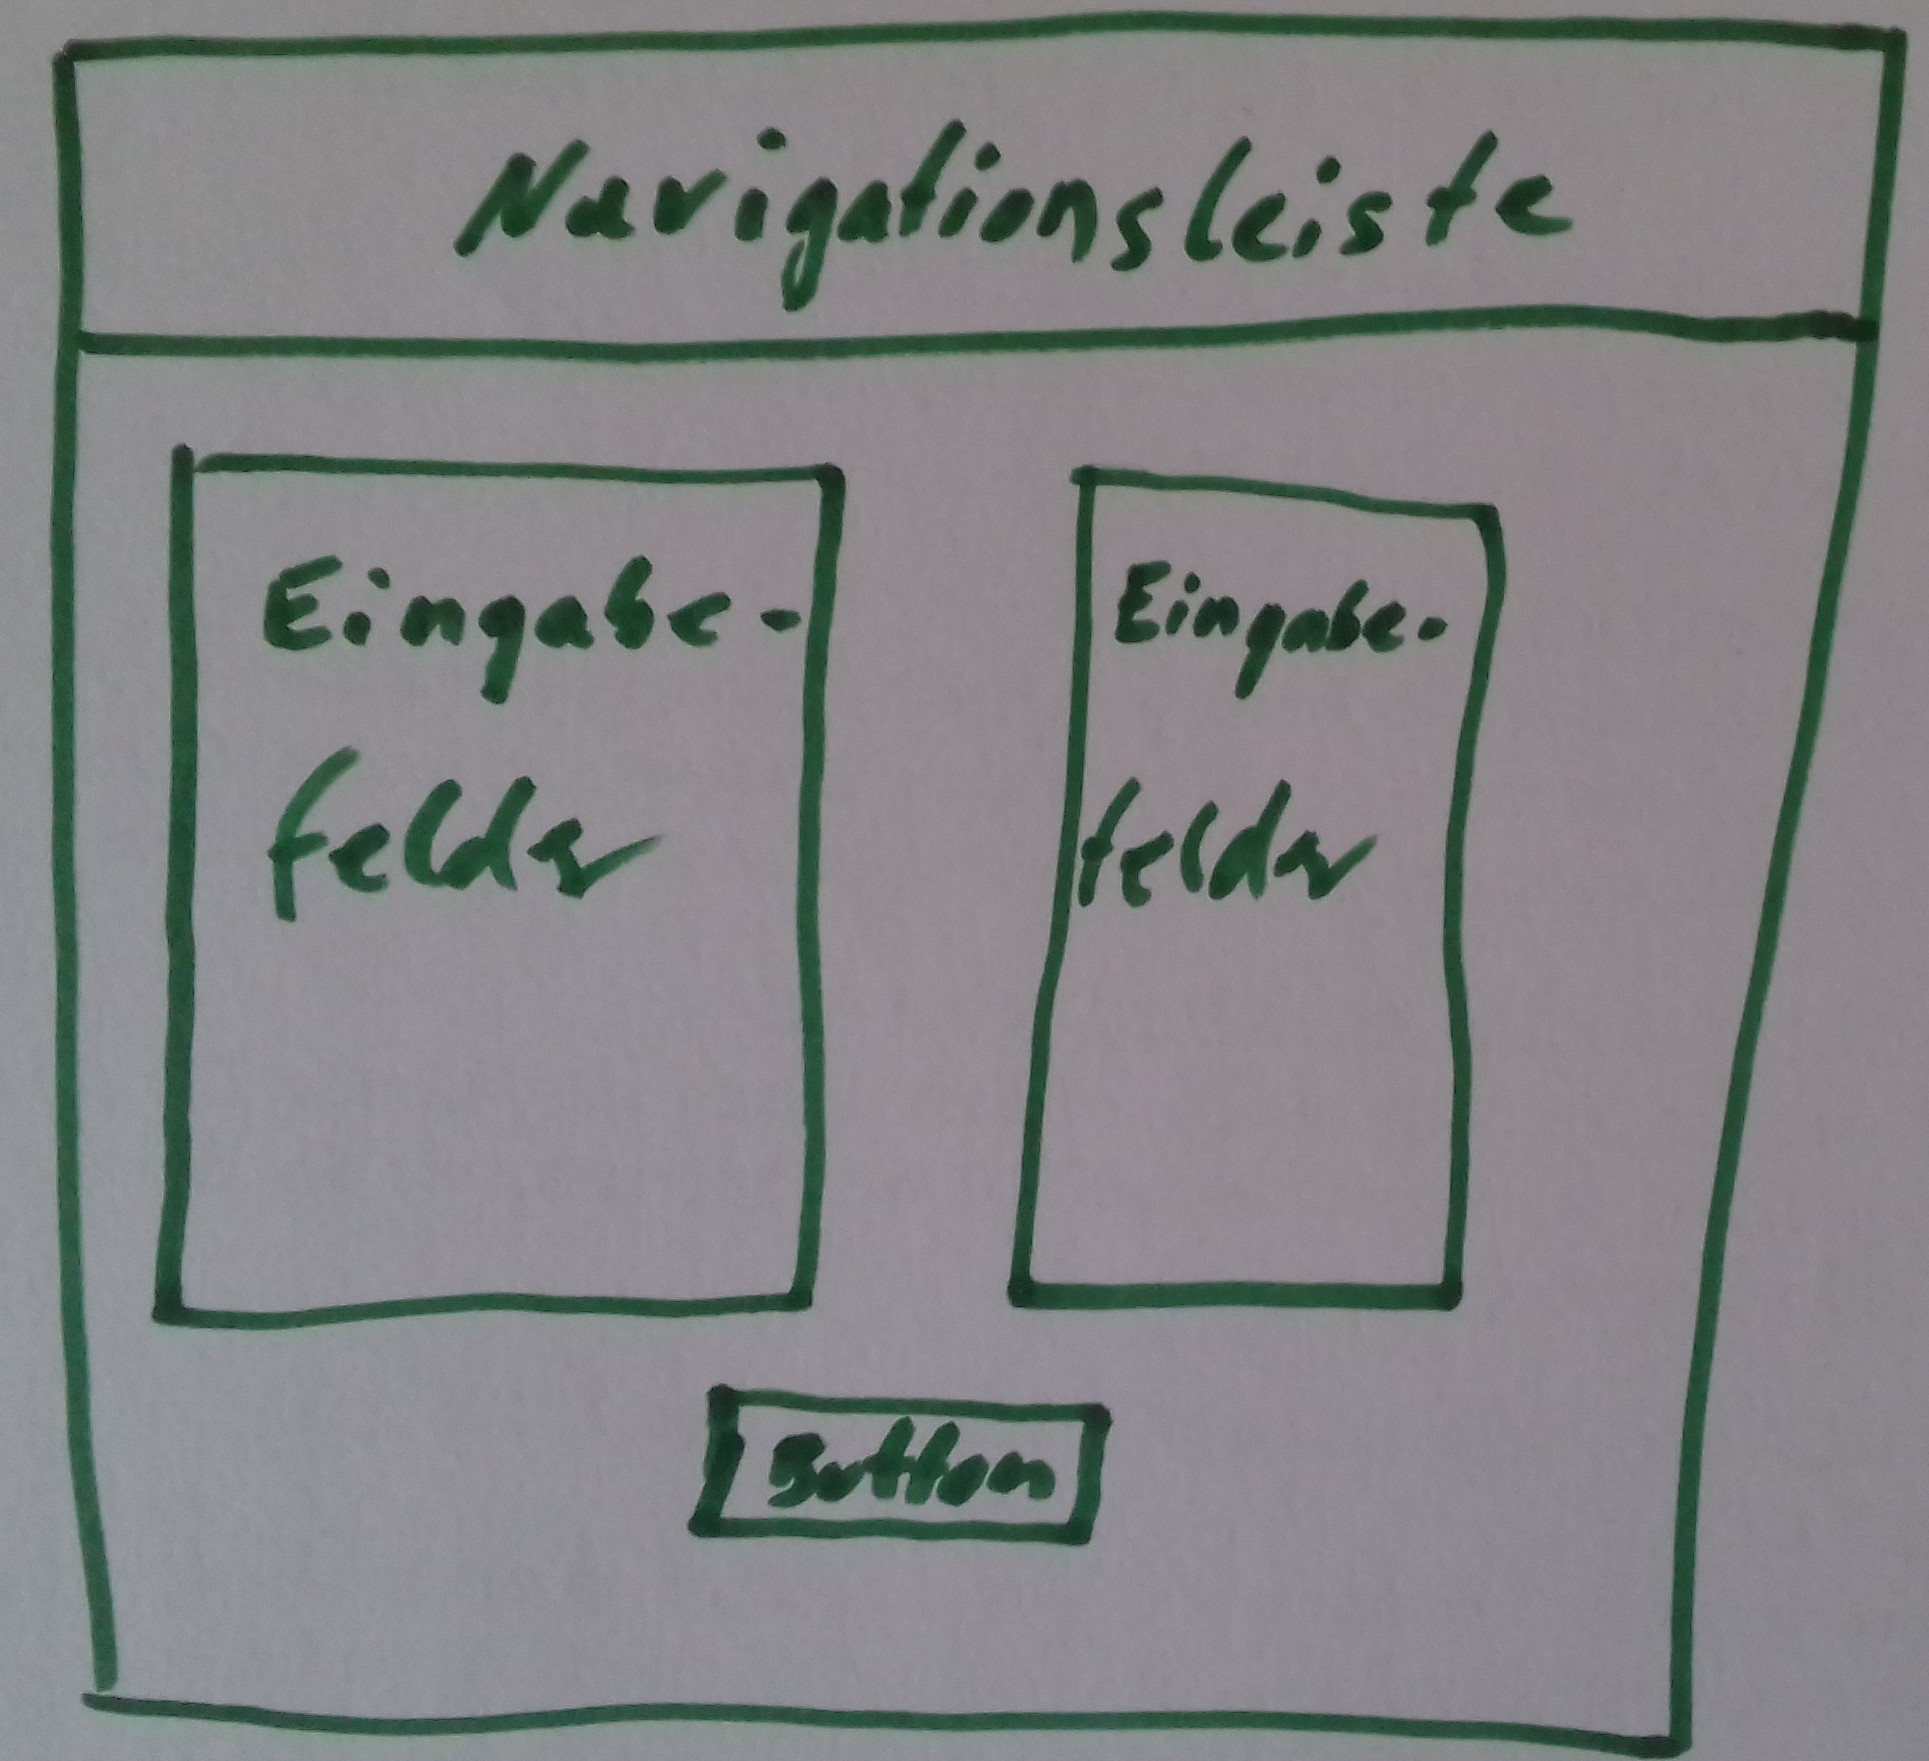 Navigationsleiste
Eingabe-
felder
Eingabe-
felder
Button